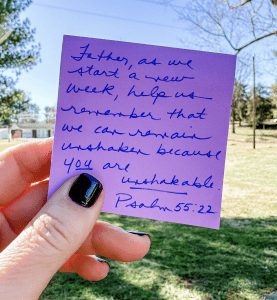 Father, as we
start a new
week, help us
remember that
we can remain
unshaken because
you are
unshakable.
Psalm 55:22